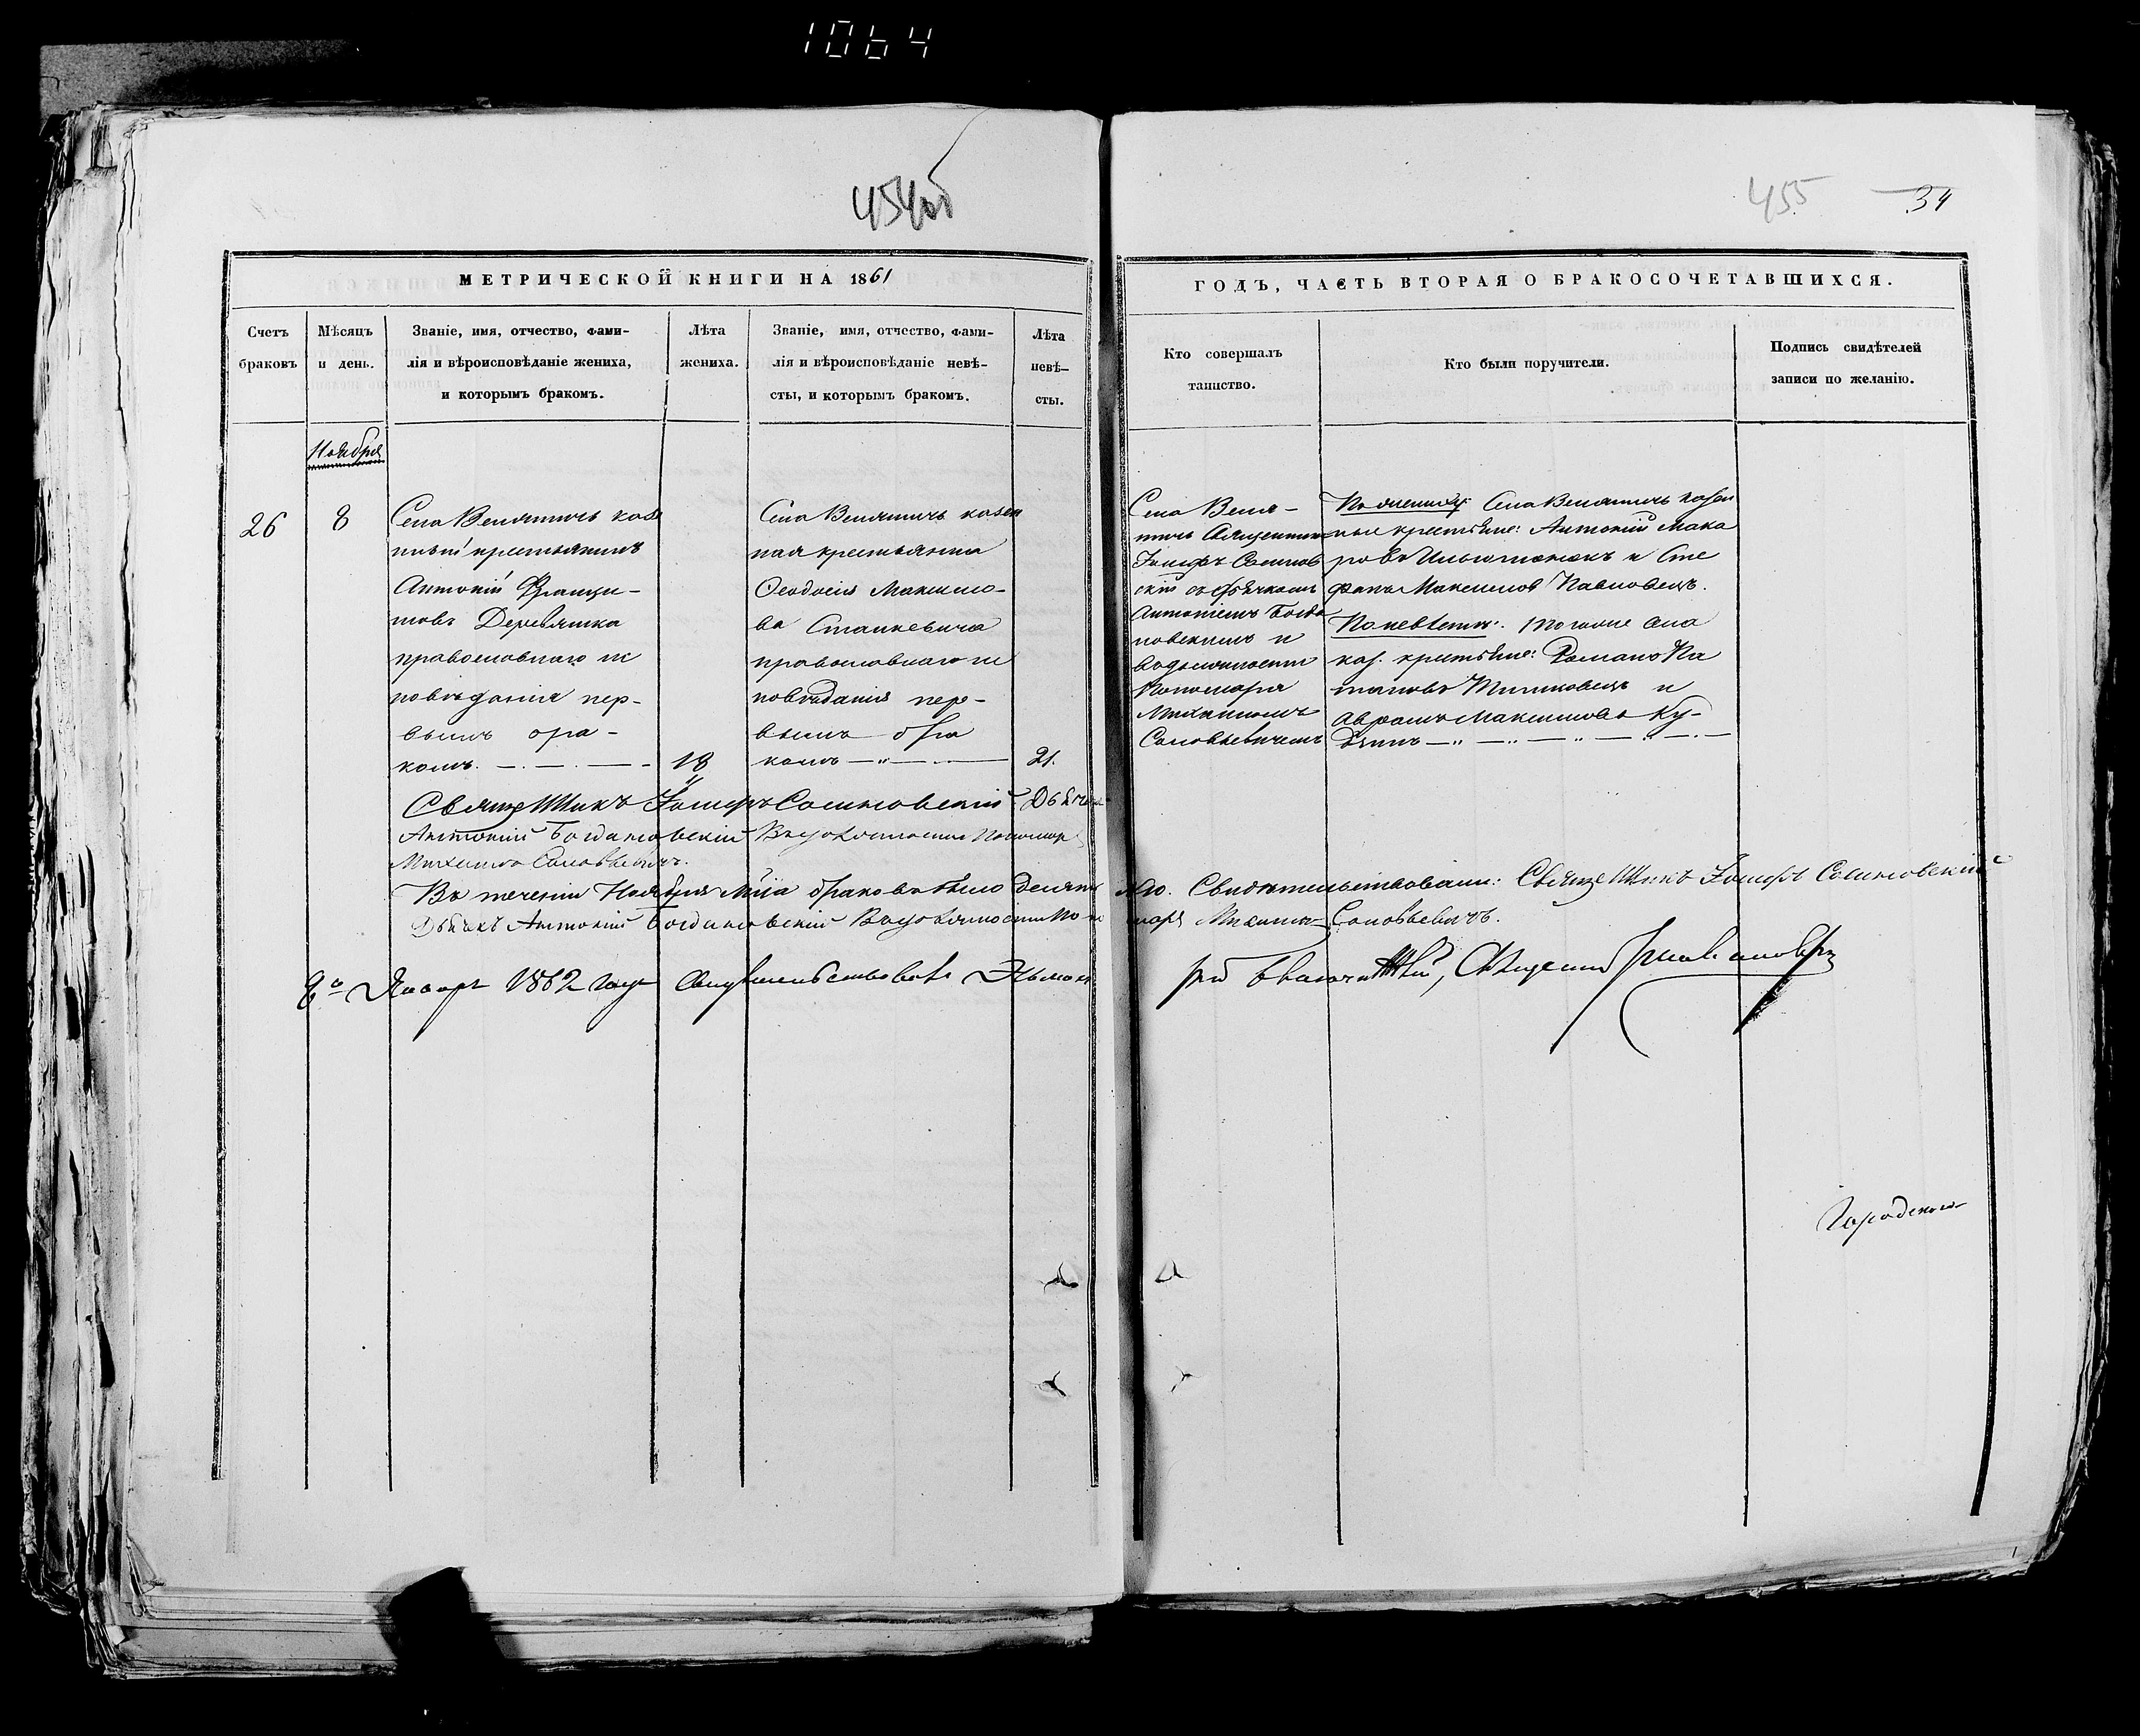 1064
454об
455 34
МЕТРИЧЕСКОЙ КНИГИ НА 1861
ГОДЪ, ЧАСТЬ ВТОРАЯ О БРАКОСОЧЕТАВШИХСЯ.
Счетъ
браковъ
Мѣсяцъ
и день.
Званіе, имя, отчество, фами-
лія и вѣроисповѣданіе жениха,
и которымъ бракомъ.
Лѣта
жениха.
Званіе, имя, отчество, фами-
лія и вѣроисповѣданіе невѣ-
сты, и которымъ бракомъ.
Лѣта
невѣ-
сты.
Кто совершалъ
таинство.
Кто были поручители.
Подпись свидѣтелей
записи по желанію.
Ноября
26
8
Села Велятичь казе
нный крестьянинъ
Антоній Францы-
товъ Деревяшка
православнаго ис
повѣданія пер-
вымъ бра-
комъ.
18
Села Велятичь казен
ная крестьянка
Ѳеодосія Максимо-
ва Станкевича
православнаго ис
повѣданія пер-
вымъ бра
комъ
21.
Села Веля-
тичь Священникъ
Іосифъ Соснов
скій съ дьячкомъ
Антоніемъ Богда
новскимъ и
въ должности
Пономаря
Михаиломъ
Соловьевичемъ
По женихѣ: Села Велятичь казен
ные крестьяне: Антоній Мака
ровъ Ильютенокъ и Сте
фанъ Максимовъ Павловецъ.
По невѣстѣ: того же села
каз. крестьяне: Романъ По
таповъ Тишковецъ и
Аврамъ Максимовъ Ку-
Священникъ Іосифъ Сосновскій. Дьячекъ
Антоній Богдановскій Въ должности Пономаря
Михаилъ Соловьевичъ.
Въ теченіи Ноября М-ца браковъ было десять
Свидѣтельствовали: Священникъ Іосифъ Сосновскій
Дьячекъ Антоній Богдановскій Въ должности Поно
маря Михаилъ Соловьевичъ.
Января 1862 года Свидѣтельствовалъ
Благочинный, Священникъ
Городского